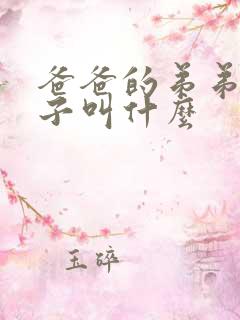 爸爸的弟弟
子叫什麼
玉碎